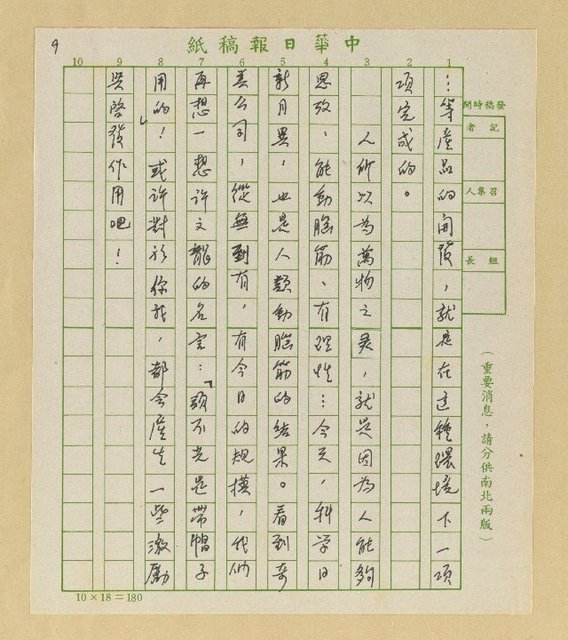 9
中華日報稿紙
1 2 3 4 5 6 7 8 9 10
發稿時間
記者
召集人
組長
(重要消息,請分供南北兩版)
…等產品的開發,就是在這種環境下一項
項完成的。
人所以為萬物之靈,就是因為人能夠
思攷,能動腦筋,有理性…今天,科學日
新月異,也是人類動腦筋的結果。看到奇
美公司,從無到有,有今日的規模,我們
再想一想許文龍的名言:「頭不光是帶帽子
用的!」或許對於你我,都會產生一些激勵
與啓發作用吧!
10×18=180